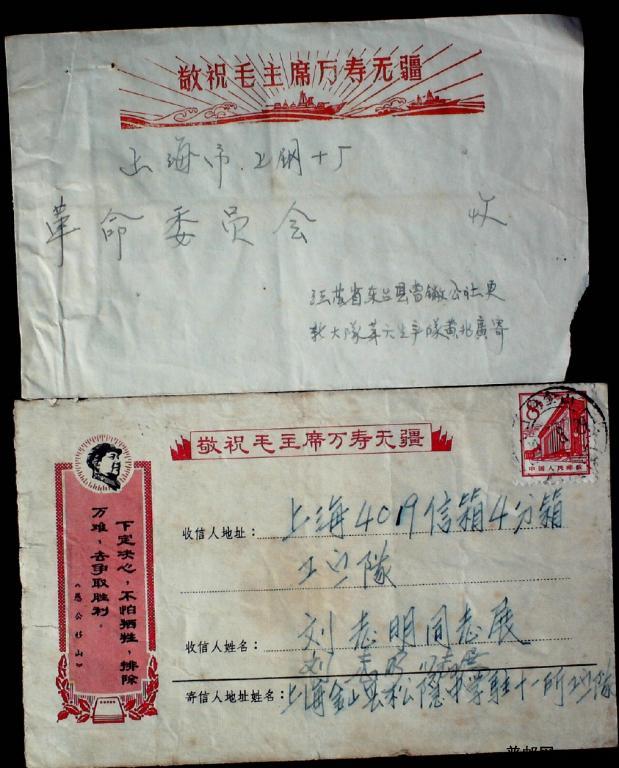 敬祝毛主席万寿无疆
上海市.上钢十厂
革命委员会 收
江苏省东台县曹撇公社更
新大队第六生产队黄兆廣寄
敬祝毛主席万寿无疆
8
中国人民邮政
下定决心，不怕牺牲，排除
万难，去争取胜利。
《愚公移山》
收信人地址：上海4019信箱4分箱
工宣隊
收信人姓名：刘志明同志展
寄信人地址姓名：上海金山县松隐中学驻十一所工宣隊
普邮网